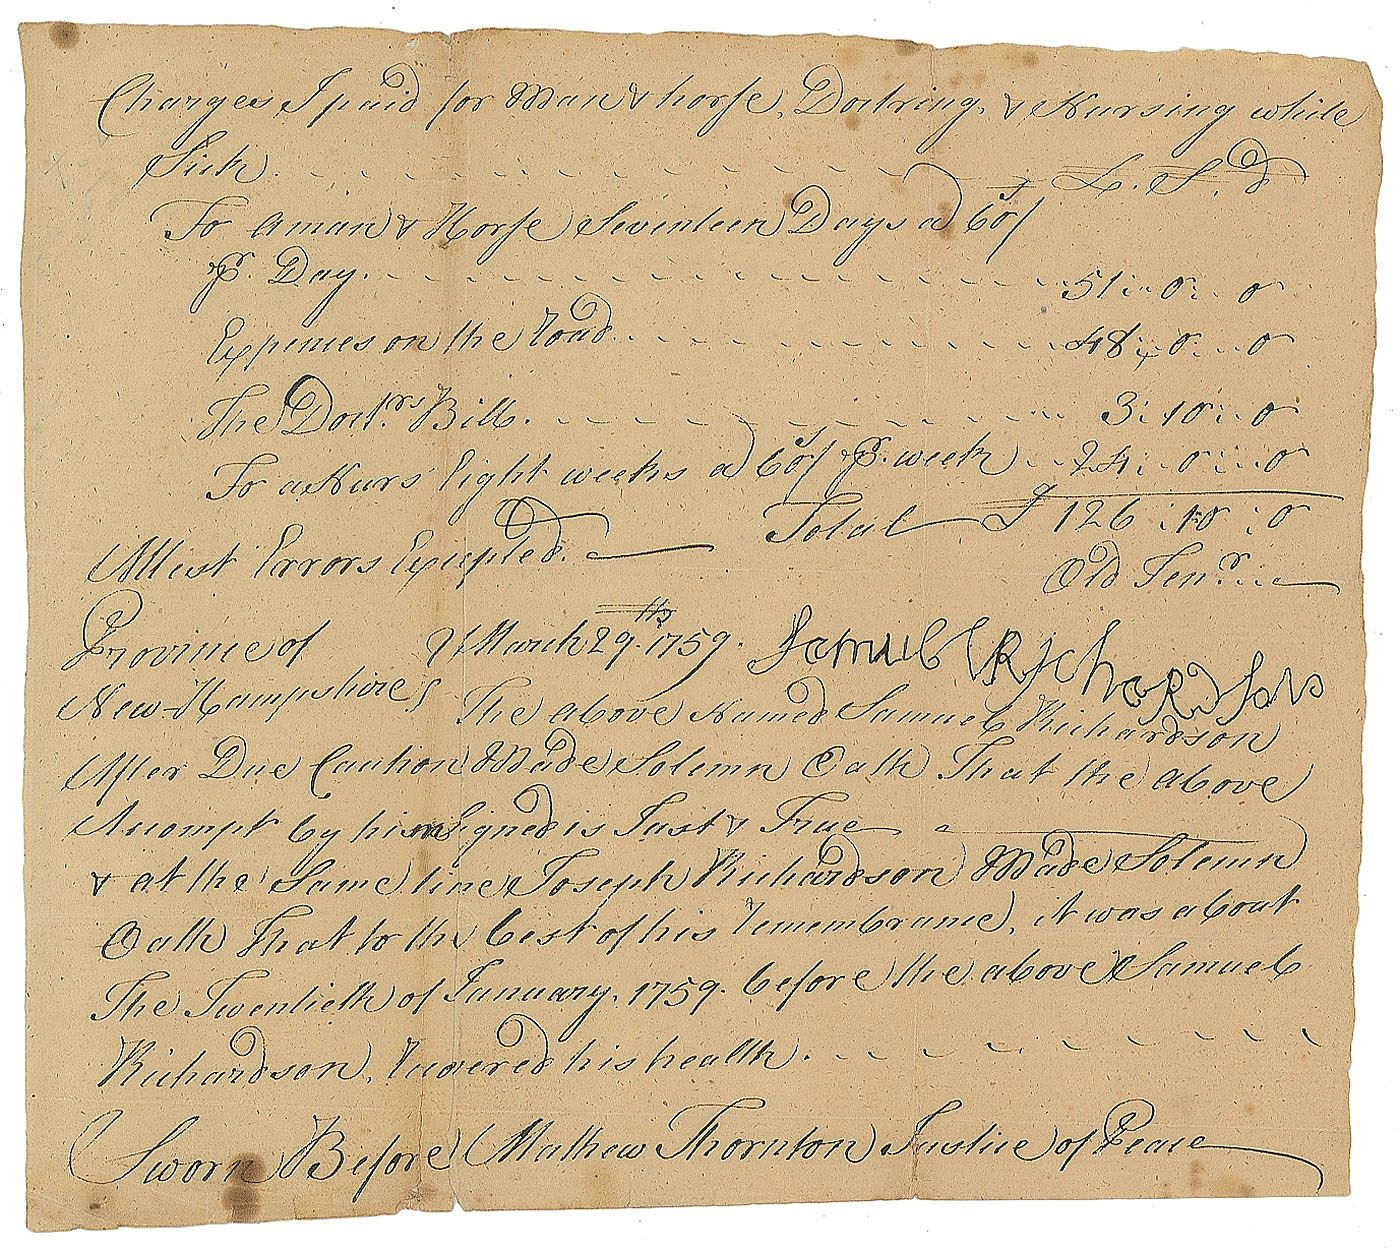 Charges I paid for Man & horse, Doctring, & Nursing while
Sick. £. S. d
To a man & Horse Seventeen Days a 60/
pr. Day. 51: 0: 0
Expences on the road 48: 0: 0
The Doctrs. Bill. 3: 10: 0
To a Nurs Eight weeks a 60/ pr. week 24: 0: 0
Total £ 126: 10: 0
Attest Errors Excepted. Old Tenr.
Province of } March 29th. 1759. Samuel Richardson
New-Hampshire } The above Named Samuel Richardson
After Due Caution Made Solemn Oath That the above
Accompt by him Signed is Just & True
& at the Same time Joseph Richardson Made Solemn
Oath That to the best of his remembrance, it was about
The Twentieth of January, 1759. before the above Samuel
Richardson, recovered his health.
Sworn Before Mathew Thornton Justice of Peace